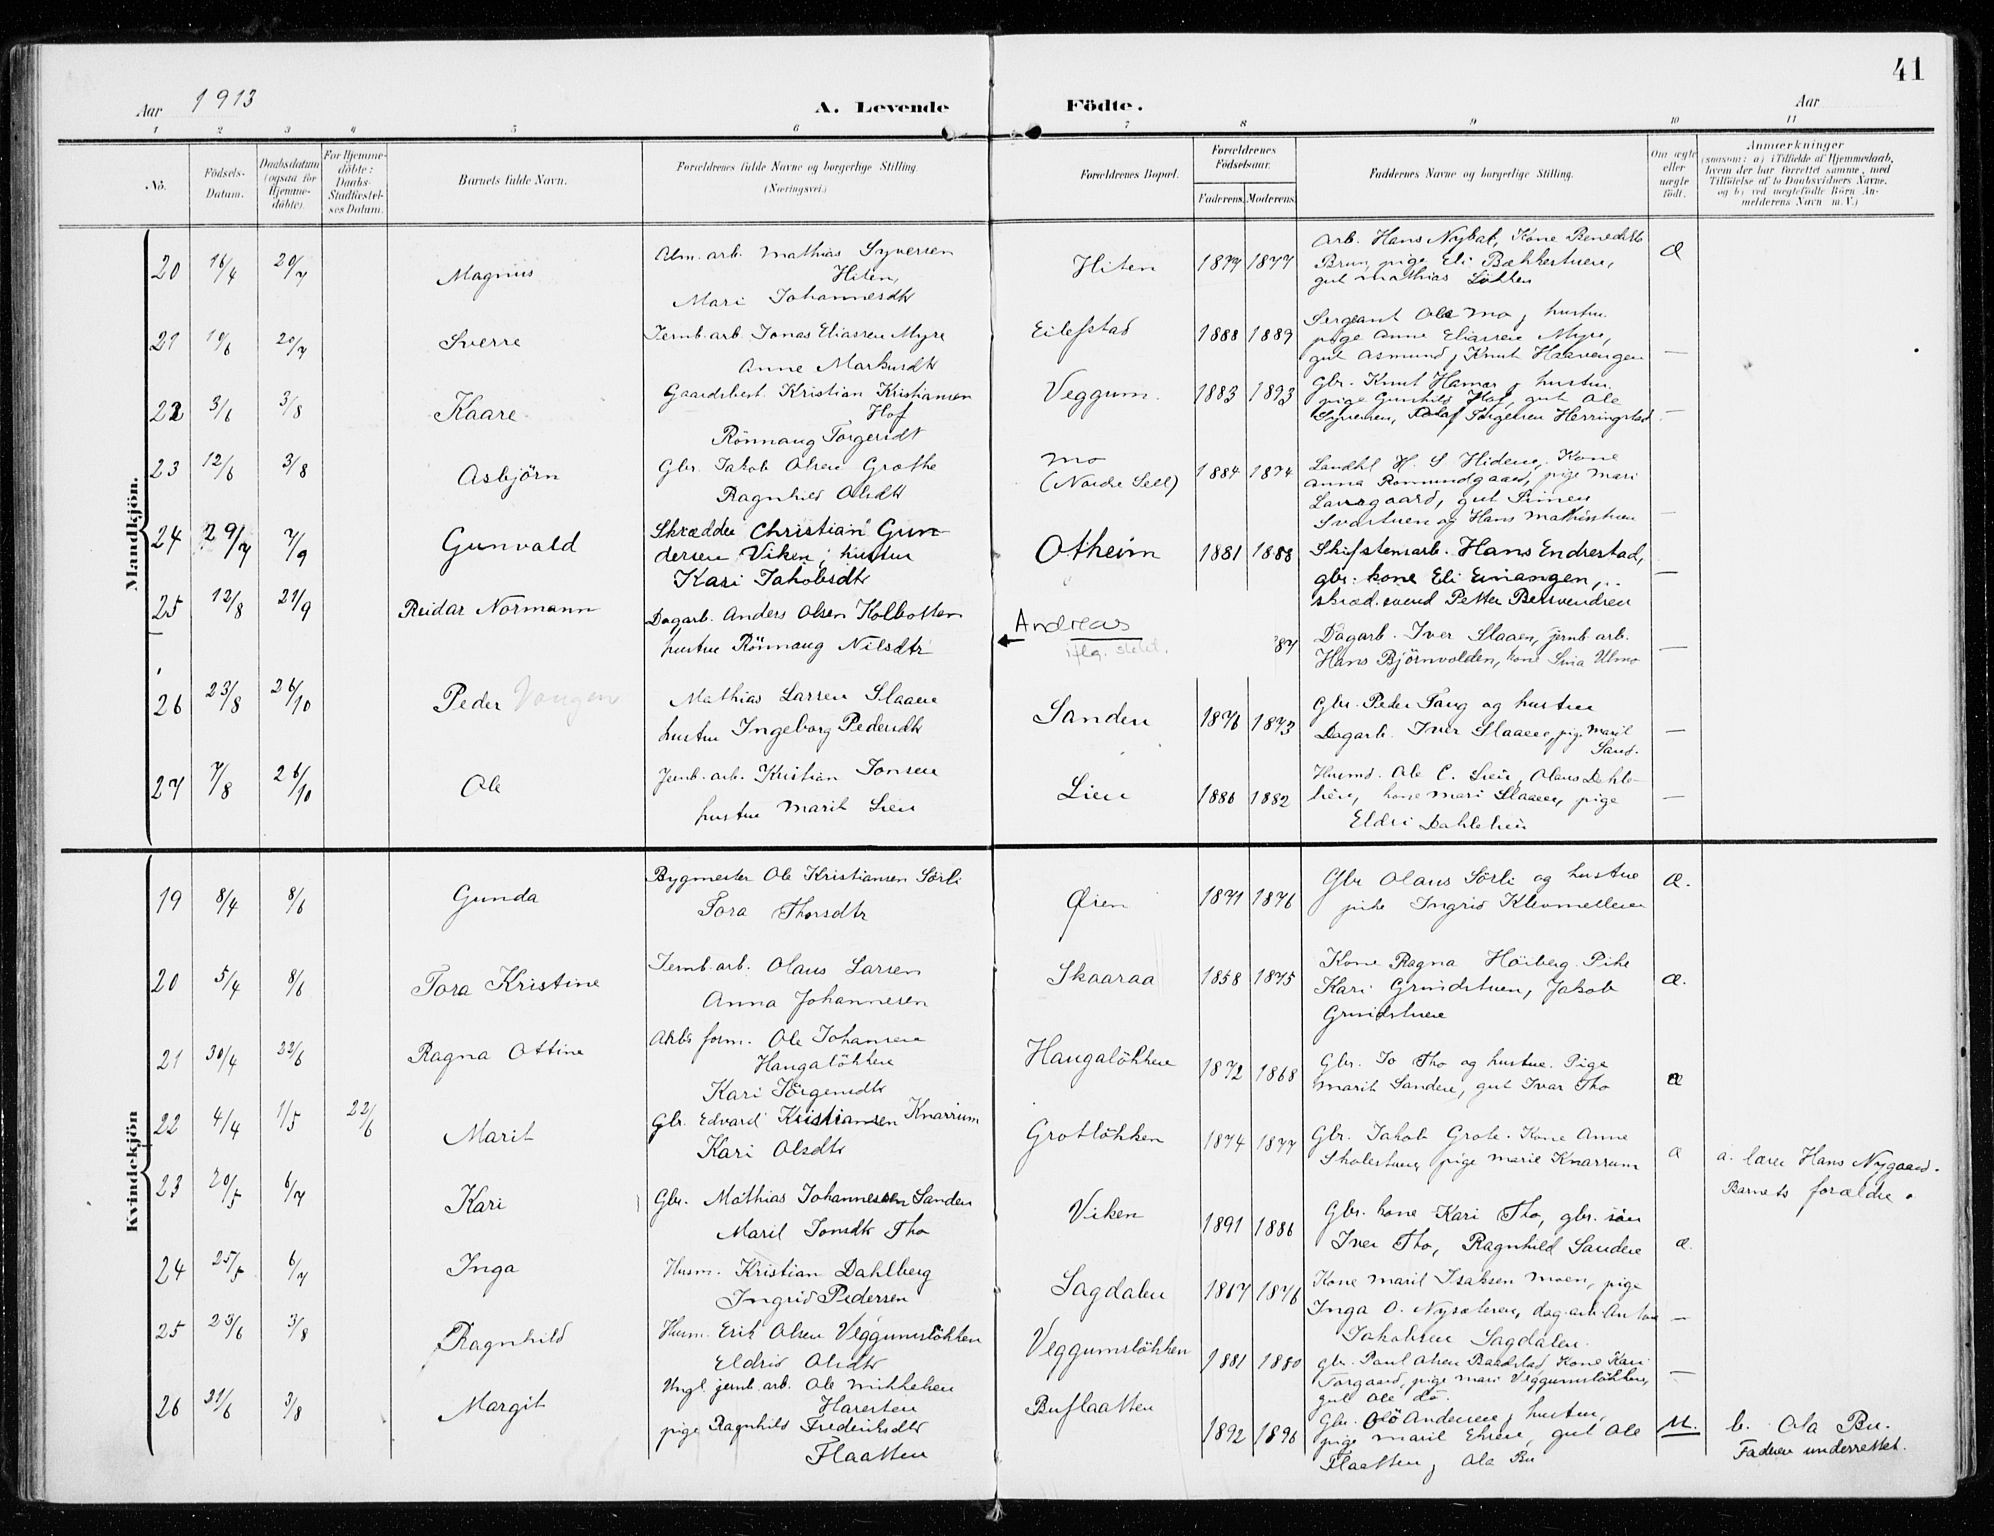 41
Aar 1913
A. Levende Födte.
Aar
1 2 3 4 5 6 7 8 9 10 11
No.
Födsels-Datum.
Daabsdatum (ogsaa for Hjemme-döbte).
For Hjemme-döbte: Daabs-Stadfæstel-ses Datum.
Barnets fulde Navn.
Forældrenes fulde Navne og borgerlige Stilling. (Næringsvei.)
Forældrenes Bopæl.
Forældrenes Födselsaar.
Faderens. Moderens.
Faddernes Navne og borgerlige Stilling.
Om ægte eller uægte födt.
Anmærkninger
(saasom: a) i Tilfælde af Hjemmedaab,
hvem der har forrettet samme, med
Tilföielse af to Daabsvidners Navne,
og b) ved uægtefödte Börn An-
melderens Navn m. V.)
Mandkjön.
20 16/4 20/7 Magnus
Alm. arb. Mathias Syversen
Hiten,
Mari Johannesdtr
Hiten 1877 1877
Arb. Hans Nybak, Kone Benedikte
Brun, pige Eli Bækkestuen,
gut Mathias Lökken
Æ
21 10/6 20/7 Sverre
Jernb. arb. Jonas Eliassen Myre
Anne Markusdtr
Eilefstad 1888 1889
Sergeant Ole Mo, hustru
pige Anne Eliassen Myre,
gut Asmund, Knut Haavengen —
22 3/6 3/8 Kaare
Gaardsbest. Kristian Kristiansen
Hof
Rönnaug Torgersdt
Veggum. 1883 1893
Gbr. Knut Hamar, hustru
pige Gunhild Hof, gut Ole
Syversen, Olaf Torgersen Herringstad —
23 12/6 3/8 Asbjörn
Gbr. Jakob Olsen Grothe
Ragnhild Olsdtr
Mo
(Nordre Sell) 1884 1874
Landhl. H. S. Hidem, Kone
Anna Romundgaard, pige Mari
Laurgaard, gut Simen
Svartuen og Hans Mathisstuen —
24 29/7 7/9 Gunvald
Skrædder Christian Gun-
dersen Viken, hustru
Kari Jakobsdtr
Otheim 1881 1888
Skifstensarb. Hans Endrestad,
gbr. kone Eli Einangen, —
skræd. svend Petter Bersvendsen
25 12/8 21/9 Reidar Normann
Dagarb. Anders Olsen Kolbotten
hustru Rönnaug Nilsdtr
Andreas
iflg. slekt. 87
Dagarb. Iver Slaaen, jernb. arb.
Hans Björnvolden, kone Sina Ulmo —
26 23/8 26/10 Peder Vangen
Mathias Larsen Slaaen
hustru Ingeborg Pedersdtr
Sanden 1876 1873
Gbr. Peder Taug og hustru
Dagarb. Iver Slaaen, pige Marit
Sand. —
27 7/8 26/10 Ole
Jernb. arb. Kristian Jonsen
hustru Marit Lien
Lien 1886 1882
Husmd. Ole C. Lien, Olaus Dahle-
lien, kone Mari Slaaen, pige
Eldri Dahlelien —
Kvindekjön
19 8/4 8/6 Gunda
Bygmester Ole Kristiansen Sörli
Tora Thorsdtr
Øien 1871 1876
Gbr Olaus Sörli og hustru
pike Ingrid Klevmetlien Æ.
20 5/4 8/6 Tora Kristine
Jernb. arb. Olaus Larsen
Anna Johannesen
Skaaraa 1858 1875
Kone Ragna Höiberg. Pike
Kari Grindstuen, Jakob
Grindstuen Æ.
21 30/4 22/6 Ragna Ottine
Arbs form. Ole Johansen
Haugalökken
Kari Jörgensdtr
Haugalökken 1872 1868
Gbr. Jo Tho og hustru. Pige
Marit Sanden, gut Ivar Tho Æ
22 4/4 1/5 22/6 Marit
Gbr. Edvard Kristiansen Knarrum
Kari Olsdtr
Grotlökken 1874 1877
Gbr. Jakob Grote. Kone Anne
Skolestuen, pige Marit Knarrum Æ
a. lærer Hans Nygaard.
Barnets forældre.
23 20/5 6/7 Kari
Gbr. Mathias Johannessen Sanden
Marit Jonsdtr Tho
Viken 1891 1886
Gbr. kone Kari Tho, gbr. sön
Iver Tho, Ragnhild Sanden Æ.
24 25/5 6/7 Inga
Husm. Kristian Dahlberg
Ingrid Pedersen
Sagdalen 1867 1876
Kone Marit Isaksen Moen, pige
Inga O. Nysæteren, dag. arb. Anton
Jakobsen Sagdalen. —
25 23/6 3/8 Ragnhild
Husm. Erik Olsen Veggumslökken
Eldrid Olsdtr
Veggumslökken 1881 1880
gbr. Paul Olsen Baardstad, Kone Kari
Torgaard, pige Mari Veggumslökken,
gut Ole do. —
26 21/6 3/8 Margit
Ungk. jernb. arb. Ole Mikkelsen
Haresten
pige Ragnhild Frederiksdtr
Flaatten
Buflaatten 1892 1896
Gbr. Ole Andersen, hustru,
pige Marit Ehren, gut Ole
Flaatten, Ola Bu U.
b. Ola Bu.
Faderen underrettet.